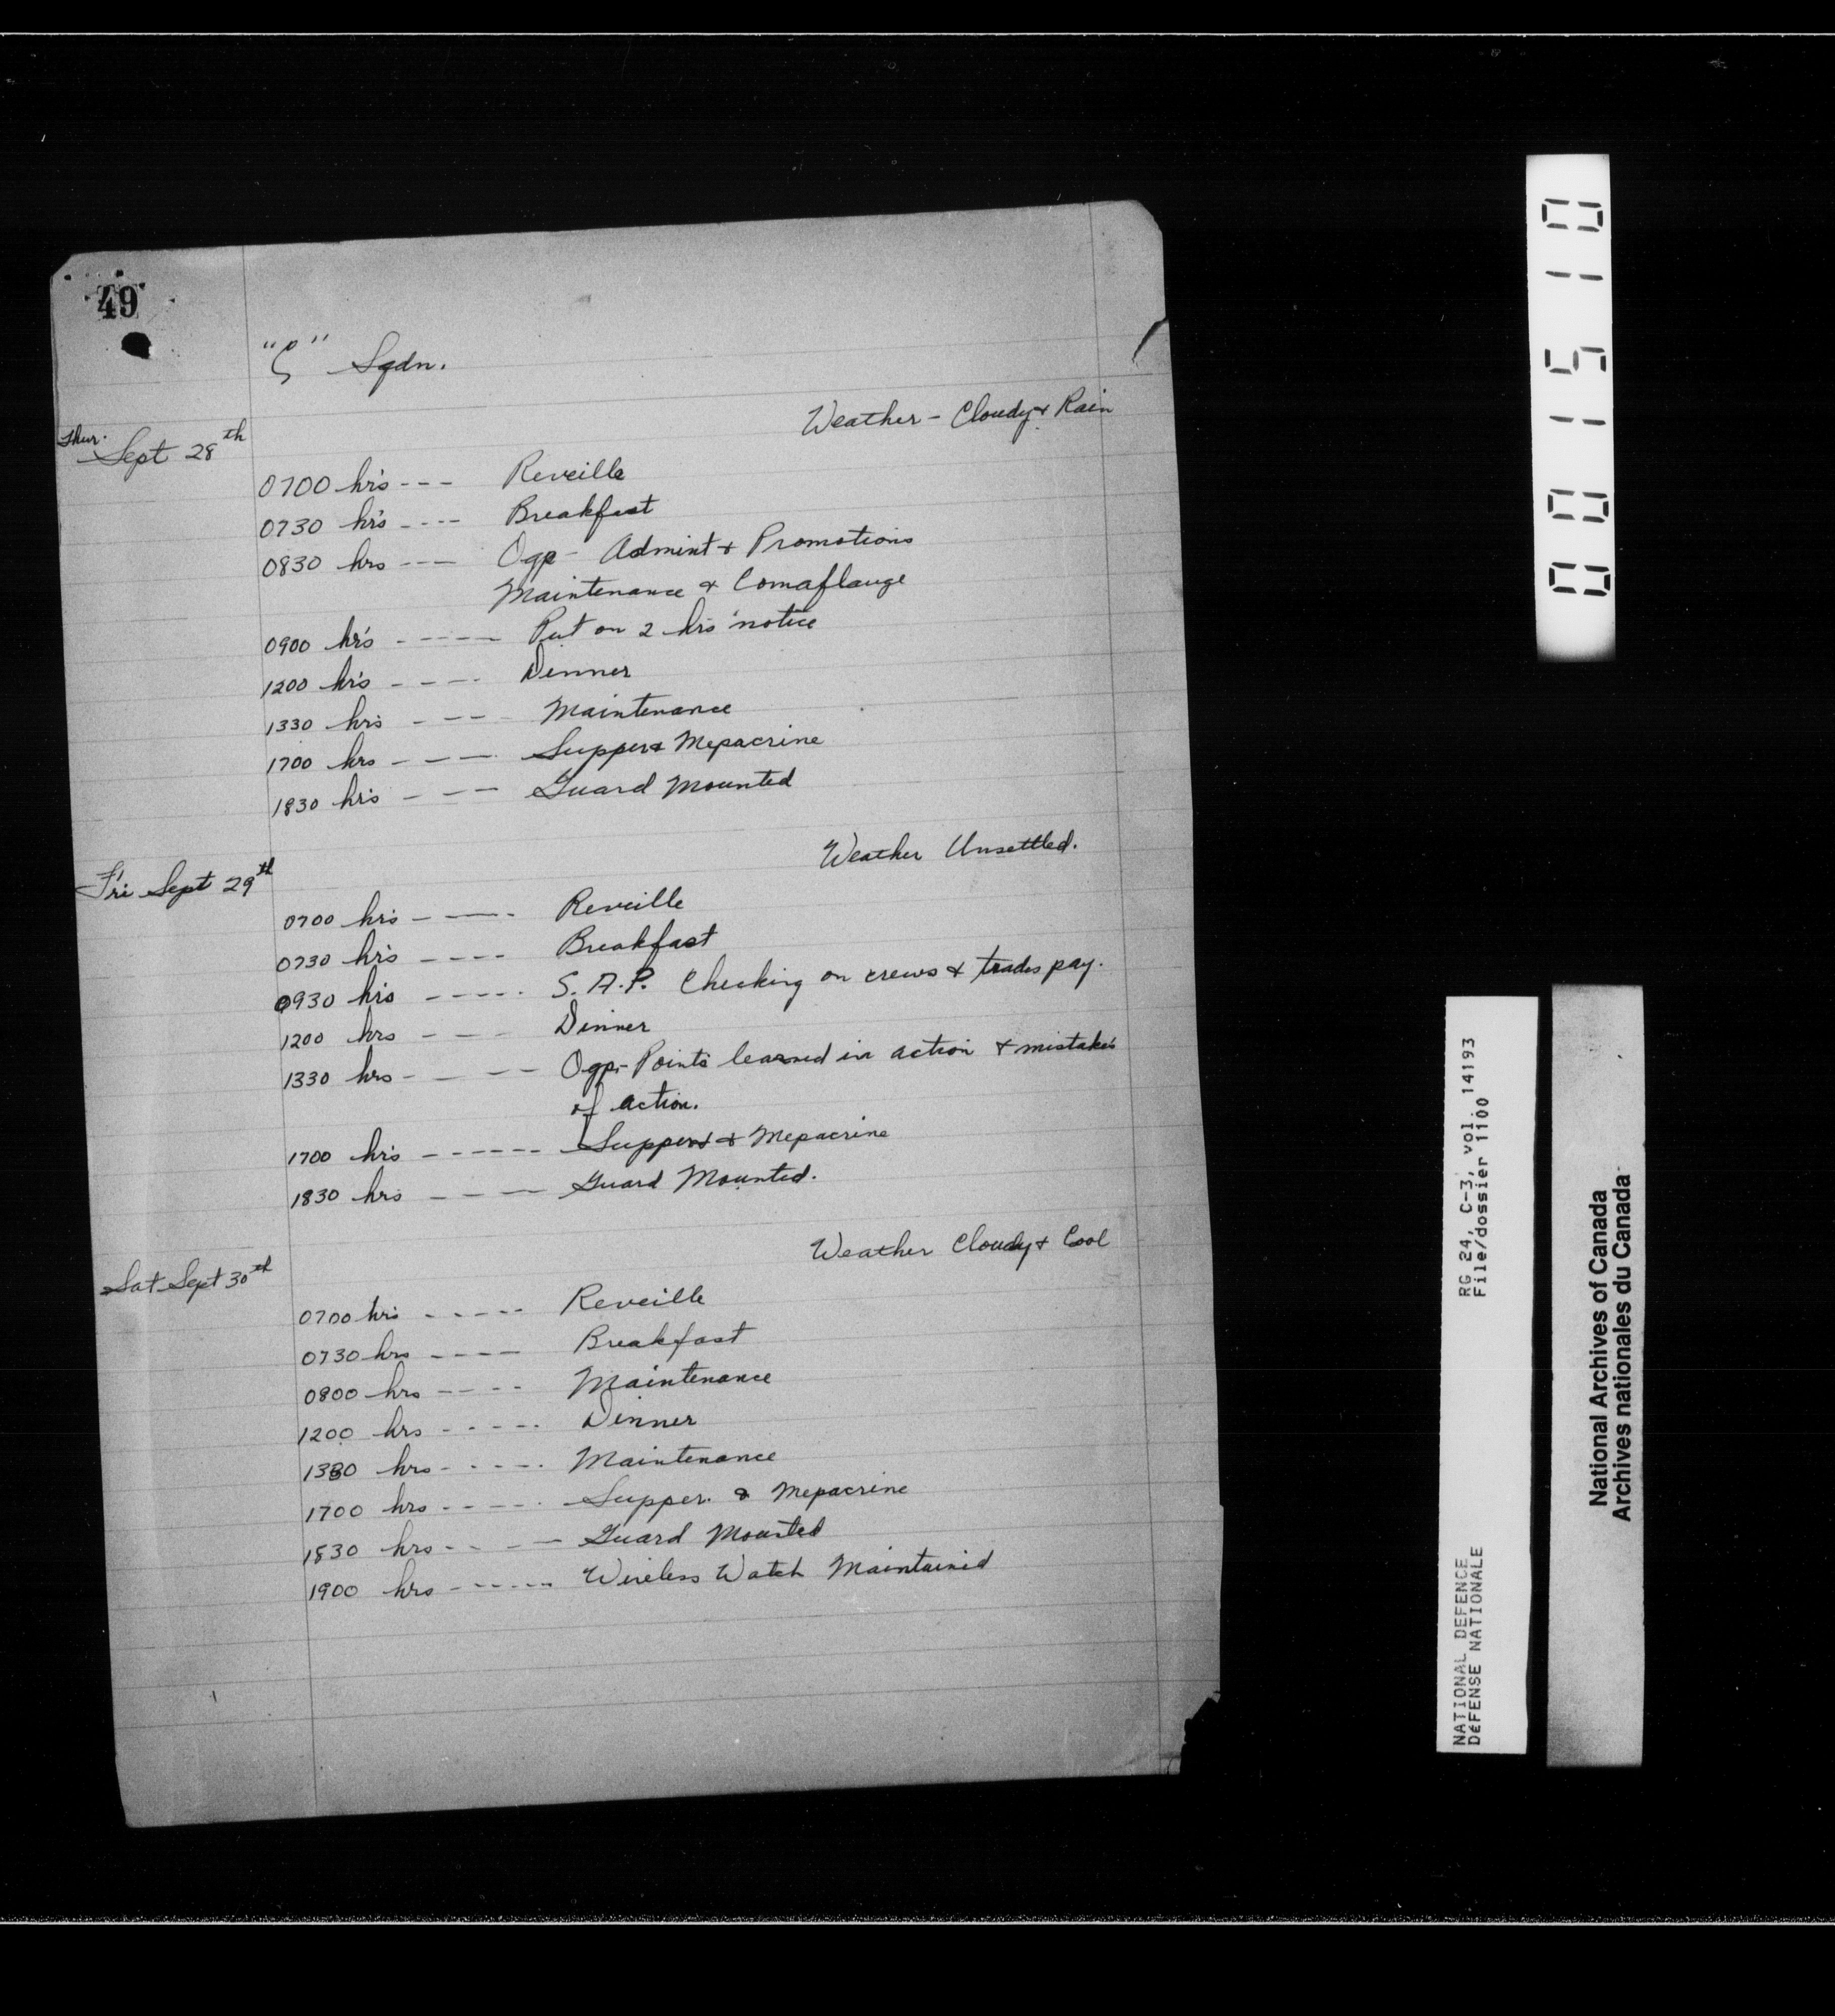 49
"C" Sqdn.
Weather - Cloudy & Rain
Thur.
Sept 28th
0700 hr's --- Reveille
0730 hr's ---- Breakfast
0830 hrs ---- Ogp - Admint & Promotions
Maintenance & Comaflauge
0900 hr's ----- Put on 2 hrs' notice
1200 hr's ---- Dinner
1330 hrs ---- Maintenance
1700 hrs ---- Supper & Mepacrine
1830 hr's --- Guard Mounted
Weather Unsettled.
Fri Sept 29th
0700 hr's ---- Reveille
0730 hr's ---- Breakfast
0930 hr's ----- S.A.P. Checking on crews & trades pay.
1200 hrs --- Dinner
1330 hrs ----- Ogp- Points learned in action & mistakes
of action.
1700 hr's ------ Supper & Mepacrine
1830 hrs ---- Guard Mounted.
Weather Cloudy & Cool
Sat Sept 30th
0700 hrs ----- Reveille
0730 hrs ---- Breakfast
0800 hrs ---- Maintenance
1200 hrs ----- Dinner
1330 hrs ----- Maintenance
1700 hrs ----- Supper. & Mepacrine
1830 hrs ---- Guard Mounted
1900 hrs ------ Wireless Watch Maintainid
001510
RG 24, C-3, vol. 14193
File/dossier 1100
NATIONAL DEFENCE
DÉFENSE NATIONALE
National Archives of Canada
Archives nationales du Canada